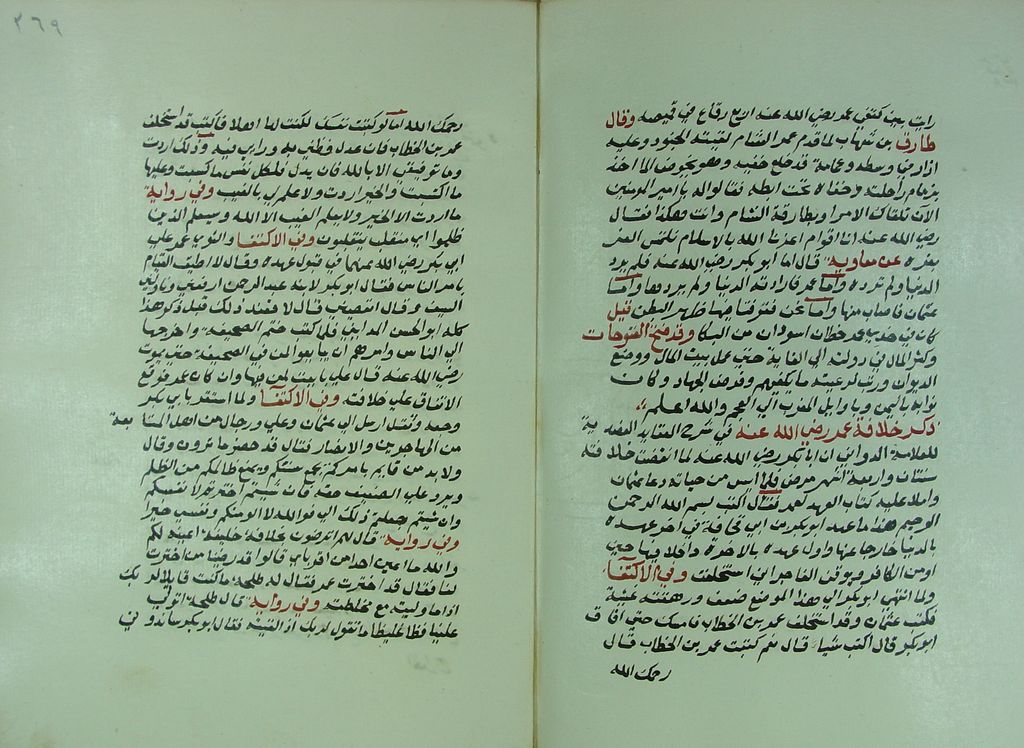 رايت بين كتفي عمر رضي الله عنه اربع رقاع في قميصه وقال
طارق بن شهاب لما قدم عمر الشام لقيته الجنود وعليه
ازار في وسطه وعمامة قد خلع خفيه وهو يخوض الما اخذ
بزمام راحلته وخفاه تحت ابطه فقالوا له يا امير المومنين
الآن تلقاك الامرا وبطارقة الشام وانت هكذا فقال
رضي الله عنه انا اقوام اعزنا الله بالاسلام فلن نلتمس العز
بغيره عن معاوية قال اما ابو بكر رضي الله عنه فلم يرد
الدنيا ولم ترده واما عمر فارادته الدنيا ولم يردها واما
عثمان فاصاب منها واما نحن فتمرغنا فيها ظهر البطن قيل
كان في خدي عمر خطان اسودان من البكا وقد فتح الفتوحات
وكثر المال في دولته الي الغاية حتي عمل بيت المال ووضع
الديوان ورتب لرعيته ما يكفيهم وفرض للجهاد وكان
نوابه باليمن وباوايل المغرب الي العجم والله اعلم
ذكر خلافة عمر رضي الله عنه في شرح العقايد العضدية
للعلامة الدواني ان ابا بكر رضي الله عنه لما انقضت خلافته
سنتان واربعة اشهر مرض فلما ايس من حياته دعا عثمان
واملا عليه كتاب العهد لعمر فقال اكتب بسم الله الرحمن
الرحيم هذا ما عهد ابو بكر بن ابي قحافة في اخر عهده
بالدنيا خارجا عنها واول عهده بالاخرة داخلا فيها حين
يومن الكافر ويوقن الفاجر اني استخلفت وفي الاكتفا
ولما انتهي ابو بكر الي هذا الموضع ضعف ورهقته غشية
فكتب عثمان وقد استخلف عمر بن الخطاب فامسك حتي افاق
ابو بكر قال اكتبت شيا قال نعم كتبت عمر بن الخطاب قال
رحمك الله
٣٦٩
رحمك الله اما لو كتبت نفسك لكنت لها اهلا فاكتب قد استخلف
عمر بن الخطاب فان عدل فظني به ورايي فيه وذلك اردت
وما توفيقي الا بالله فان بدل فلكل نفس ما كسبت وعليها
ما اكتسبت والخير اردت ولا علم لي بالغيب وفي رواية
ما اردت الا الخير ولا يعلم الغيب الا الله وسيعلم الذين
ظلموا اي منقلب ينقلبون وفي الاكتفا والتوي عمر علي
ابي بكر رضي الله عنهما في قبول عهده وقال لا اطيق القيام
بامر الناس فقال ابو بكر لابنه عبد الرحمن ارفعني وناولني
السيف عمر قال اتعفيني قال لا فعند ذلك قبل ذكر هذا
كله ابو الحسن المدايني فلما كتب ختم الصحيفة واخرجها
الي الناس وامرهم ان يبايعوا لمن في الصحيفة حتي مرت
رضي الله عنه قال علي بايعت لمن فيها وان كان عمر فوقع
الاتفاق علي خلافته وفي الاكتفا ولما استقر بابي بكر
وجعه وثقل ارسل الي عثمان وعلي ورجال من اهل السابقة
من المهاجرين والانصار فقال قد حضر ما ترون ولا
ولا بد من قايم بامركم يجمع فيتكم ويمنع ظالمكم من الظلم
ويرد علي الضعيف حقه فان شيتم اخترتم لانفسكم
وان شيتم جعلتم ذلك الي فوالله لا الوكم ونفسي خيرا
وفي رواية قال لهم اترضون بخلافة خليفة اعينه لكم
والله ما اعين احدا من اقرباي قالوا قد رضينا من اخترت
لنا فقال قد اخترت عمر فقال له طلحة ما كنت قايلا لربك
اذا ما وليته مع غلظته وفي رواية قال طلحة اتولي
علينا فظا غليظا ما تقول لربك اذا لقيته فقال ابو بكر ساندوني